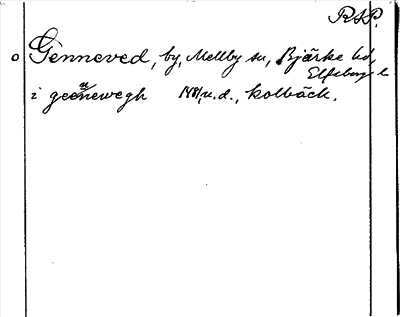 RAP.
o Genneved, by, Mellby sn, Bjärke hd,
Elfsborgs l
i geenewegh u.d., Kolbäck.